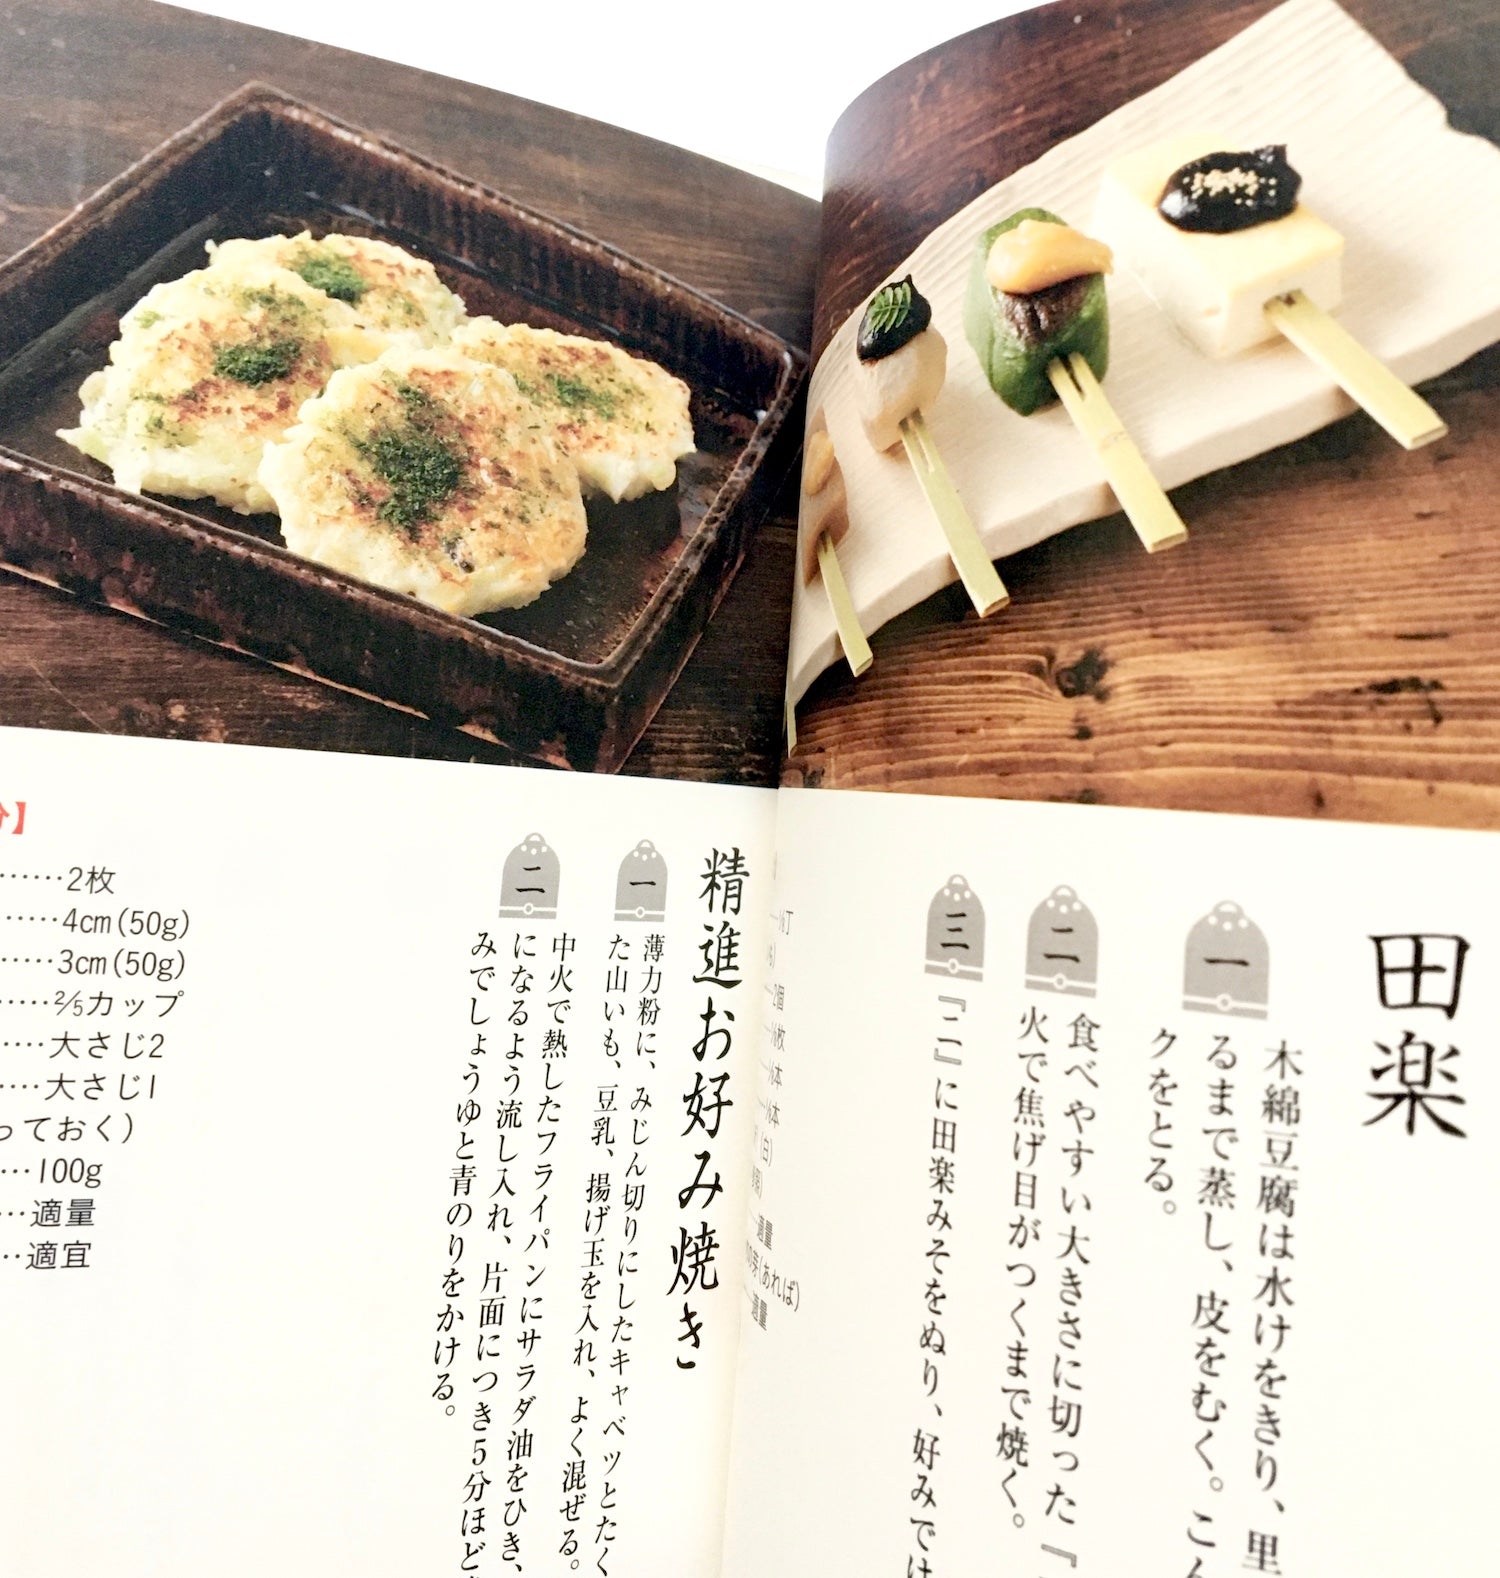 田楽
一
木綿豆腐は水けをきり、里
るまで蒸し、皮をむく。こん
クをとる。
二
食べやすい大きさに切った『
火で焦げ目がつくまで焼く。
三
『二』に田楽みそをぬり、好みでけ
⅓丁
2個
⅓枚
⅓本
⅓本
(白)
適量
の芽(あれば)
適量
精進お好み焼き
一
薄力粉に、みじん切りにしたキャベツとたく
た山いも、豆乳、揚げ玉を入れ、よく混ぜる。
二
中火で熱したフライパンにサラダ油をひき、
になるよう流し入れ、片面につき5分ほど
みでしょうゆと青のりをかける。
分】
……2枚
……4cm(50g)
……3cm(50g)
……⅖カップ
……大さじ2
……大さじ1
っておく)
…100g
…適量
…適宜